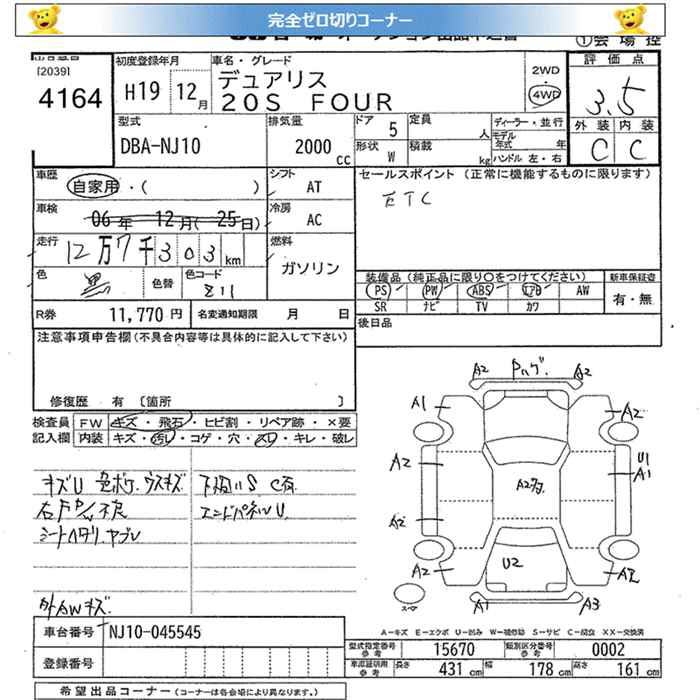 完全ゼロ切りコーナー
①会場控
出品番号 初度登録年月 車名・グレード 評価点
[2039] デュアリス 2WD
4164 H19 12月 20S FOUR 4WD 3.5
型式 排気量 ドア 5 定員 人 ディーラー・並行 外装 内装
DBA-NJ10 2000cc 形状 W 積載 kg モデル年式 年 C C
ハンドル 左・右
車歴 自家用・( ) シフト AT セールスポイント (正常に機能するものに限ります)
車検 06年 12月(25日) 冷房 AC ETC
走行 12万7千303km 燃料
色 黒 色替 色コード Z11 ガソリン 装備品(純正品に限り○をつけてください) 新車保証書
PS PW ABS エアB AW 有・無
SR ナビ TV カワ
R券 11,770円 名変通知期限 月 日 後日品
注意事項申告欄(不具合内容等は具体的に記入して下さい)
修復歴 有 〔箇所 〕
検査員 FW キズ・飛石・ヒビ割・リペア跡・×要
記入欄 内装 キズ・汚レ・コゲ・穴・スレ・キレ・破レ
キズU 色ボケ.ウスキズ 下廻りS C有
エンドパネルU
シートヘタリ.ヤブレ
外AWキズ
A2 Pハゲ. A2
A1 A2
A2 U1
A1
A2
A2 U2
A2
A1 A3
スペア
A-キズ E-エクボ U-凹み W-補修跡 S-サビ C-腐食 XX-交換済
車台番号 NJ10-045545
登録番号
型式指定番号 参考 15670 類別区分番号 参考 0002
車庫証明用 参考 長さ 431cm 幅 178cm 高さ 161cm
希望出品コーナー(コーナーは各会場により異なります。)